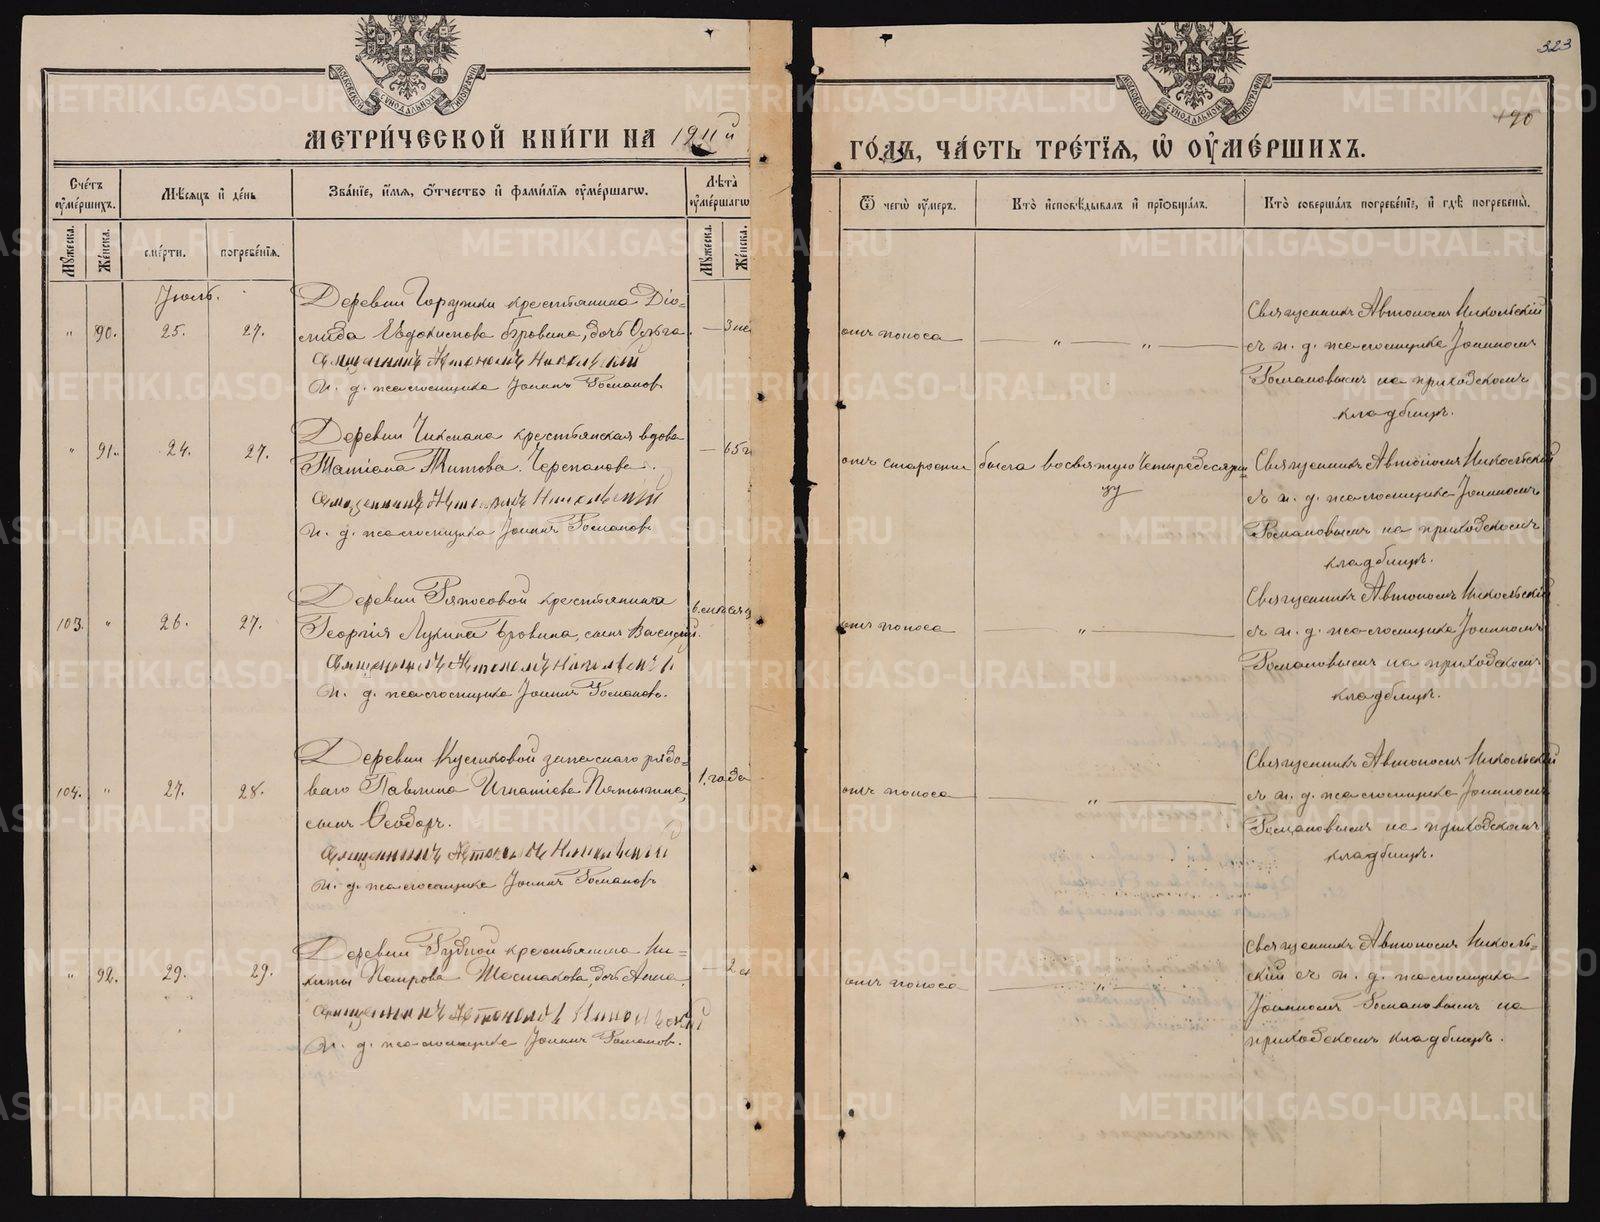 323
190
МЕТРИ́ЧЕСКОЙ КНИ́ГИ НА 1911й
ГО́ДЪ, ЧА́СТЬ ТРЕ́ТІѦ, Ѡ ОУМЕ́РШИХЪ.
Сче́тъ оуме́ршихъ.
Мѣ́сяцъ и де́нь
Зва́ніе, и́мя, о́тчество и фами́лія оуме́ршагѡ.
Лѣта̀ оуме́ршагѡ
Ѿ чегѡ̀ оу́меръ.
Кто̀ исповѣ́дывалъ и пріобща́лъ.
Кто̀ соверша́лъ погребе́ніе, и гдѣ̀ погребены̀.
Мужеска.
Же́нска.
сме́рти.
погребе́нія.
Мужеска.
Же́нска.
Іюль.
" 90. 25. 27.
Деревни крестьянина Діо-
мида Евдокимова Бровина, дочь Ольга
Священникъ Автономъ Никольскій
И. д. псаломщика Іоаннъ Романовъ
— 3 не
отъ поноса
— " — " —
Священникъ Автономъ Никольскій
съ и. д. псаломщика Іоанномъ
Романовымъ на приходскомъ
кладбищѣ.
" 91. 24. 27.
Деревни Чикмана крестьянская вдова
Татіана Титова Черепанова.
Священникъ Автономъ Никольскій
И. д. псаломщика Іоаннъ Романовъ
— 65 г
отъ старости
была въ святую Четыредесятни
цу
Священникъ Автономъ Никольскій
съ и. д. псаломщика Іоанномъ
Романовымъ на приходскомъ
кладбищѣ.
103. " 26. 27.
Деревни Ряпосовой крестьянина
Георгія Лукина Бровина, сынъ Василій.
Священникъ Автономъ Никольскій
И. д. псаломщика Іоаннъ Романовъ.
6. мѣсяц
отъ поноса
— " —
Священникъ Автономъ Никольскій
съ и. д. псаломщика Іоанномъ
Романовымъ на приходскомъ
кладбищѣ.
104. " 27. 28.
Деревни запаснаго рядо-
ваго Павлина Игнатіева Пятыгина,
сынъ Ѳеодоръ.
Священникъ Автономъ Никольскій
И. д. псаломщика Іоаннъ Романовъ
1. года
отъ поноса
— " —
Священникъ Автономъ Никольскій
съ и. д. псаломщика Іоанномъ
Романовымъ на приходскомъ
кладбищѣ.
" 92. 29. 29.
Деревни крестьянина Ни-
киты Петрова Шестакова, дочь Анна.
Священникъ Автономъ Никольскій
И. д. псаломщика Іоаннъ Романовъ.
— 2
отъ поноса
— " —
Священникъ Автономъ Николь-
скій съ и. д. псаломщика
Іоанномъ Романовымъ на
приходскомъ кладбищѣ.
METRIKI.GASO-URAL.RU